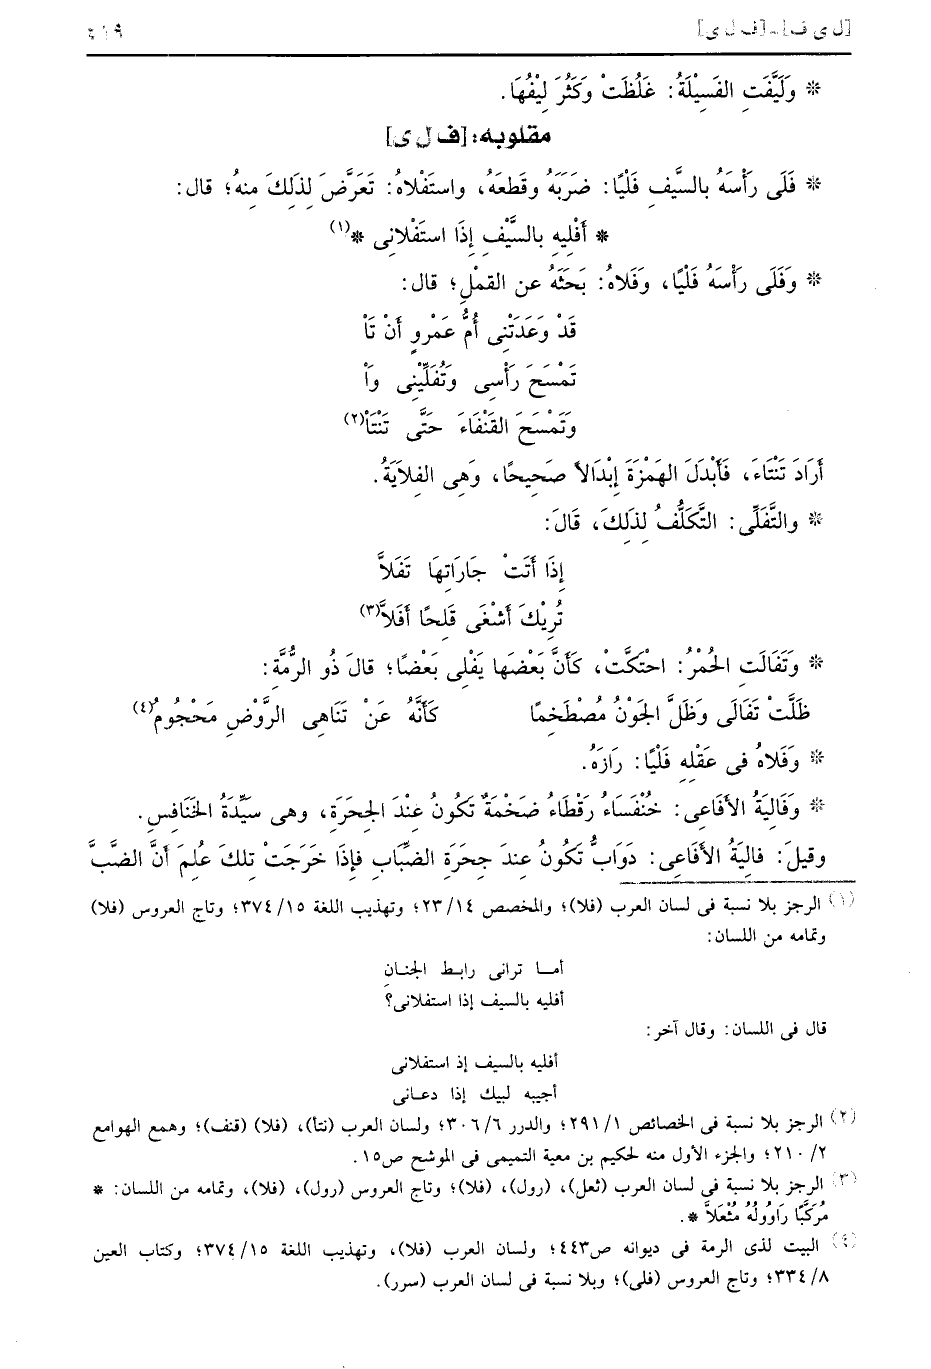 [ل ی ف] - [ف ل ی] ٤١٩
* وَلَيَّفَتِ الفَسِيْلَةُ: غَلُظَتْ وَكَثُرَ لِيْفُهَا.
مقلوبه: [ف ل ى]
* فَلَى رَأْسَهُ بالسَّيفِ فَلْيًا: ضَرَبَهُ وقَطعَهُ، واستَفْلاهُ: تَعَرَّضَ لِذَلِكَ مِنهُ؛ قال:
* أَفْلِيهِ بِالسَّيْفِ إِذَا استَفْلانِى *(١)
* وَفَلَى رَأْسَهُ فَلْيًا، وَفَلاهُ: بَحَثَهُ عن القملِ؛ قال:
قَدْ وَعَدَتْنِى أُمُّ عَمْرٍو أَنْ تَا
تَمْسَحَ رَأْسِى وَتُفَلِّيْنِى وَاْ
وَتَمْسَحَ القَنْفَاءَ حَتَّى تَنْتَأْ(٢)
أَرَادَ تَنْتَاءَ، فَأَبْدَلَ الهَمْزَةَ إِبْدَالاً صَحِيحًا، وَهِى الفِلاَيَةُ.
* والتَّفَلِّى: التَّكَلُّفُ لِذَلِكَ، قَالَ:
إِذَا أَتَتْ جَارَاتِهَا تَفَلاَّ
تُرِيْكَ أَشْغَى قَلِحًا أَفَلاَّ(٣)
* وَتَفَالَتِ الحُمْرُ: احْتَكَّتْ، كَأَنَّ بَعْضَها يَفْلِى بَعْضًا؛ قالَ ذُو الرُّمَّة:
ظَلَّتْ تَفَالَى وَظَلَّ الجَوْنُ مُصْطَخِمًا كَأَنَّهُ عَنْ تَنَاهِى الرَّوْضِ مَحْجُومُ(٤)
* وَفَلاهُ فى عَقْلِهِ فَلْيًا: رَازَهُ.
* وَفَالِيَةُ الأَفَاعِى: خُنْفَسَاءُ رَقْطَاءُ ضَخْمَةٌ تَكُونُ عِنْدَ الجِحَرَةِ، وهى سَيِّدَةُ الخَنَافِسِ.
وقِيلَ: فالِيَةُ الأَفَاعِى: دَوَابُّ تَكُونُ عِندَ جِحَرَةِ الضِّبَابِ فَإِذَا خَرَجَتْ تِلكَ عُلِمَ أَنَّ الضَّبَّ
(١) الرجز بلا نسبة فى لسان العرب (فلا)؛ والمخصص ١٤/ ٢٣؛ وتهذيب اللغة ١٥/ ٣٧٤؛ وتاج العروس (فلا)
وتمامه من اللسان:
أمـا ترانى رابط الجنان
أفليه بالسيف إذا استفلانى؟
قال فى اللسان: وقال آخر:
أفليه بالسيف إذ استفلانى
أجيبه لبيك إذا دعـانى
(٢) الرجز بلا نسبة فى الخصائص ١/ ٢٩١؛ والدرر ٦/ ٣٠٦؛ ولسان العرب (نتأ)، (فلا) (قنف)؛ وهمع الهوامع
٢/ ٢١٠؛ والجزء الأول منه لحكيم بن معية التميمى فى الموشح ص١٥.
(٣) الرجز بلا نسبة فى لسان العرب (ثعل)، (رول)، (فلا)؛ وتاج العروس (رول)، (فلا)، وتمامه من اللسان: *
مُرَكَّبًا رَاوُولُهُ مُثْعَلاً *.
(٤) البيت لذى الرمة فى ديوانه ص٤٤٣؛ ولسان العرب (فلا)، وتهذيب اللغة ١٥/ ٣٧٤؛ وكتاب العين
٨/ ٣٣٤؛ وتاج العروس (فلى)؛ وبلا نسبة فى لسان العرب (سرر).